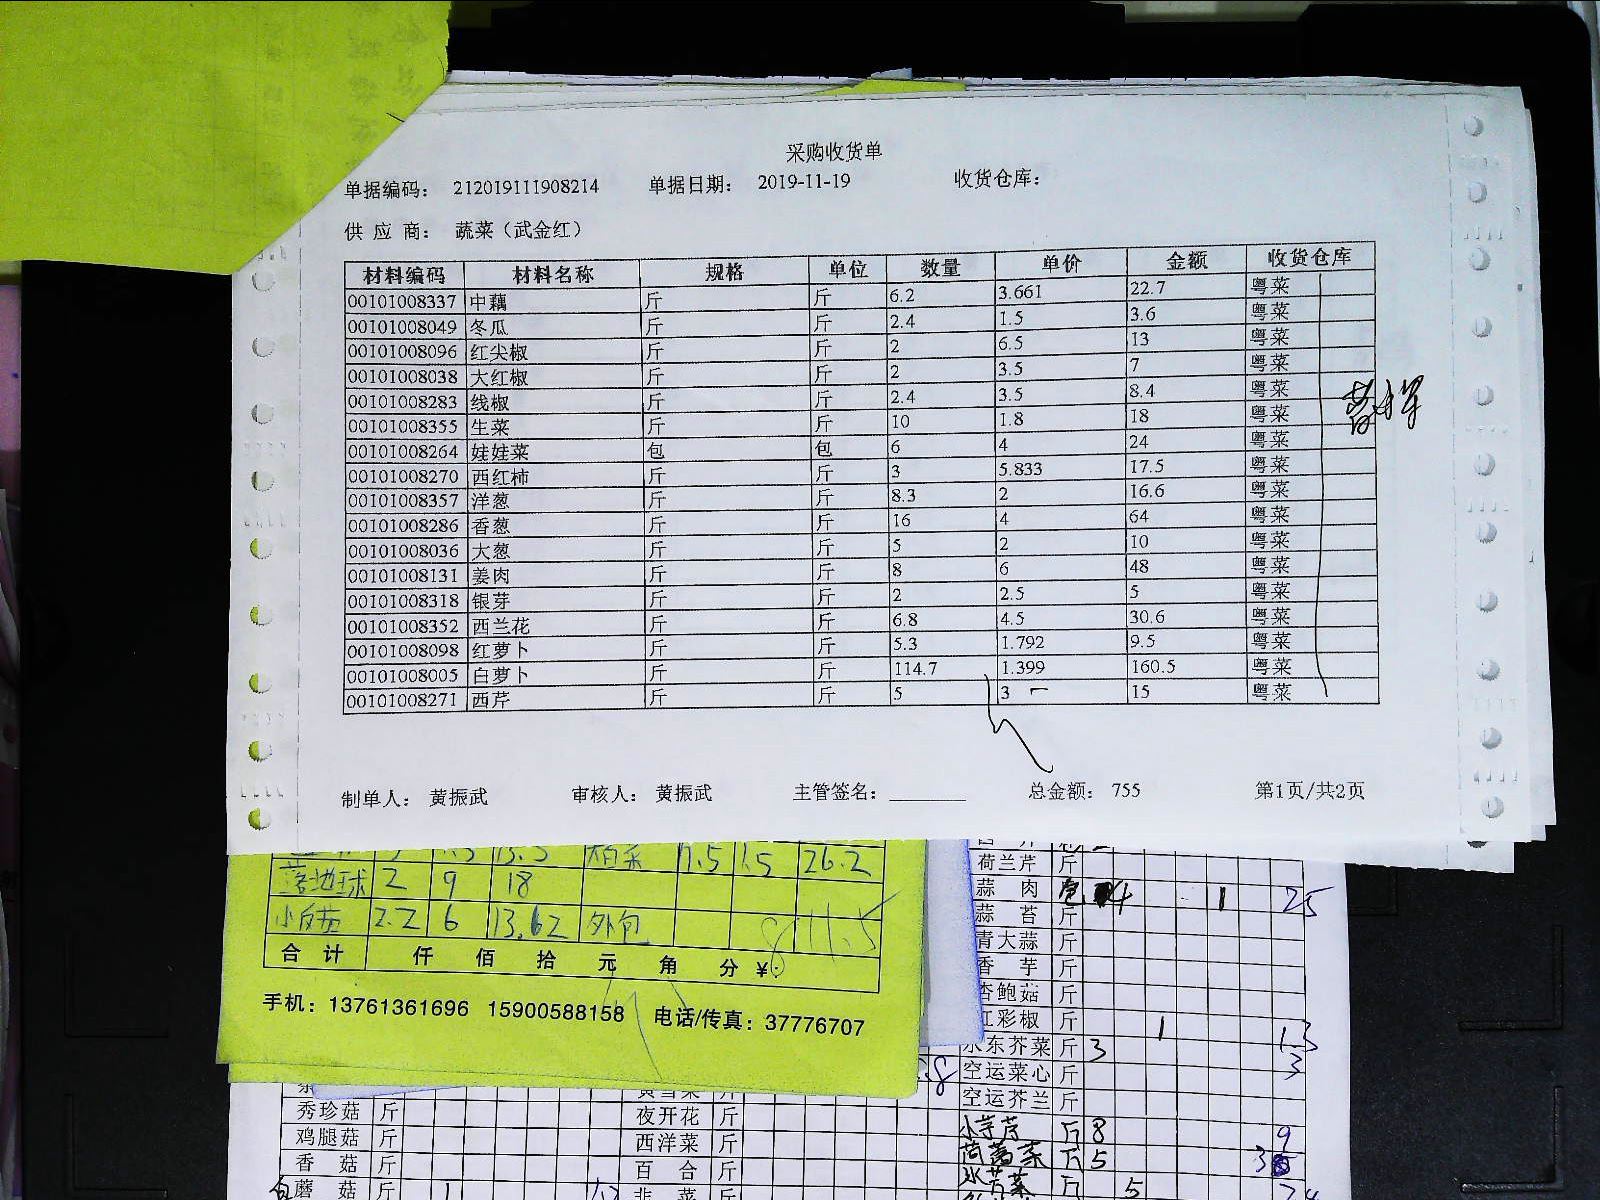 采购收货单
单据编码： 212019111908214 单据日期： 2019-11-19 收货仓库：
供 应 商： 蔬菜（武金红）
材料编码 材料名称 规格 单位 数量 单价 金额 收货仓库
00101008337 中藕 斤 斤 6.2 3.661 22.7 粤菜
00101008049 冬瓜 斤 斤 2.4 1.5 3.6 粤菜
00101008096 红尖椒 斤 斤 2 6.5 13 粤菜
00101008038 大红椒 斤 斤 2 3.5 7 粤菜
00101008283 线椒 斤 斤 2.4 3.5 8.4 粤菜
00101008355 生菜 斤 斤 10 1.8 18 粤菜
00101008264 娃娃菜 包 包 6 4 24 粤菜
00101008270 西红柿 斤 斤 3 5.833 17.5 粤菜
00101008357 洋葱 斤 斤 8.3 2 16.6 粤菜
00101008286 香葱 斤 斤 16 4 64 粤菜
00101008036 大葱 斤 斤 5 2 10 粤菜
00101008131 姜肉 斤 斤 8 6 48 粤菜
00101008318 银芽 斤 斤 2 2.5 5 粤菜
00101008352 西兰花 斤 斤 6.8 4.5 30.6 粤菜
00101008098 红萝卜 斤 斤 5.3 1.792 9.5 粤菜
00101008005 白萝卜 斤 斤 114.7 1.399 160.5 粤菜
00101008271 西芹 斤 斤 5 3 15 粤菜
制单人： 黄振武 审核人： 黄振武 主管签名： 总金额： 755 第1页/共2页
2 9 18
2.2 6 13.62 外包 11.5
合 计 仟 佰 拾 元 角 分 ¥：
手机：13761361696 15900588158 电话/传真：37776707
荷兰芹 斤
蒜 肉 包 4 1 25
蒜 苔 斤
青大蒜 斤
香 芋 斤
杏鲍菇 斤
红彩椒 斤 1 1.3
水东芥菜 斤 3 3
空运菜心 斤
空运芥兰 斤
斤 8 9
茼蒿菜 斤 5
5
秀珍菇 斤 夜开花 斤
鸡腿菇 斤 西洋菜 斤
香 菇 斤 百 合 斤
蘑 菇 斤 1 韭 菜 斤